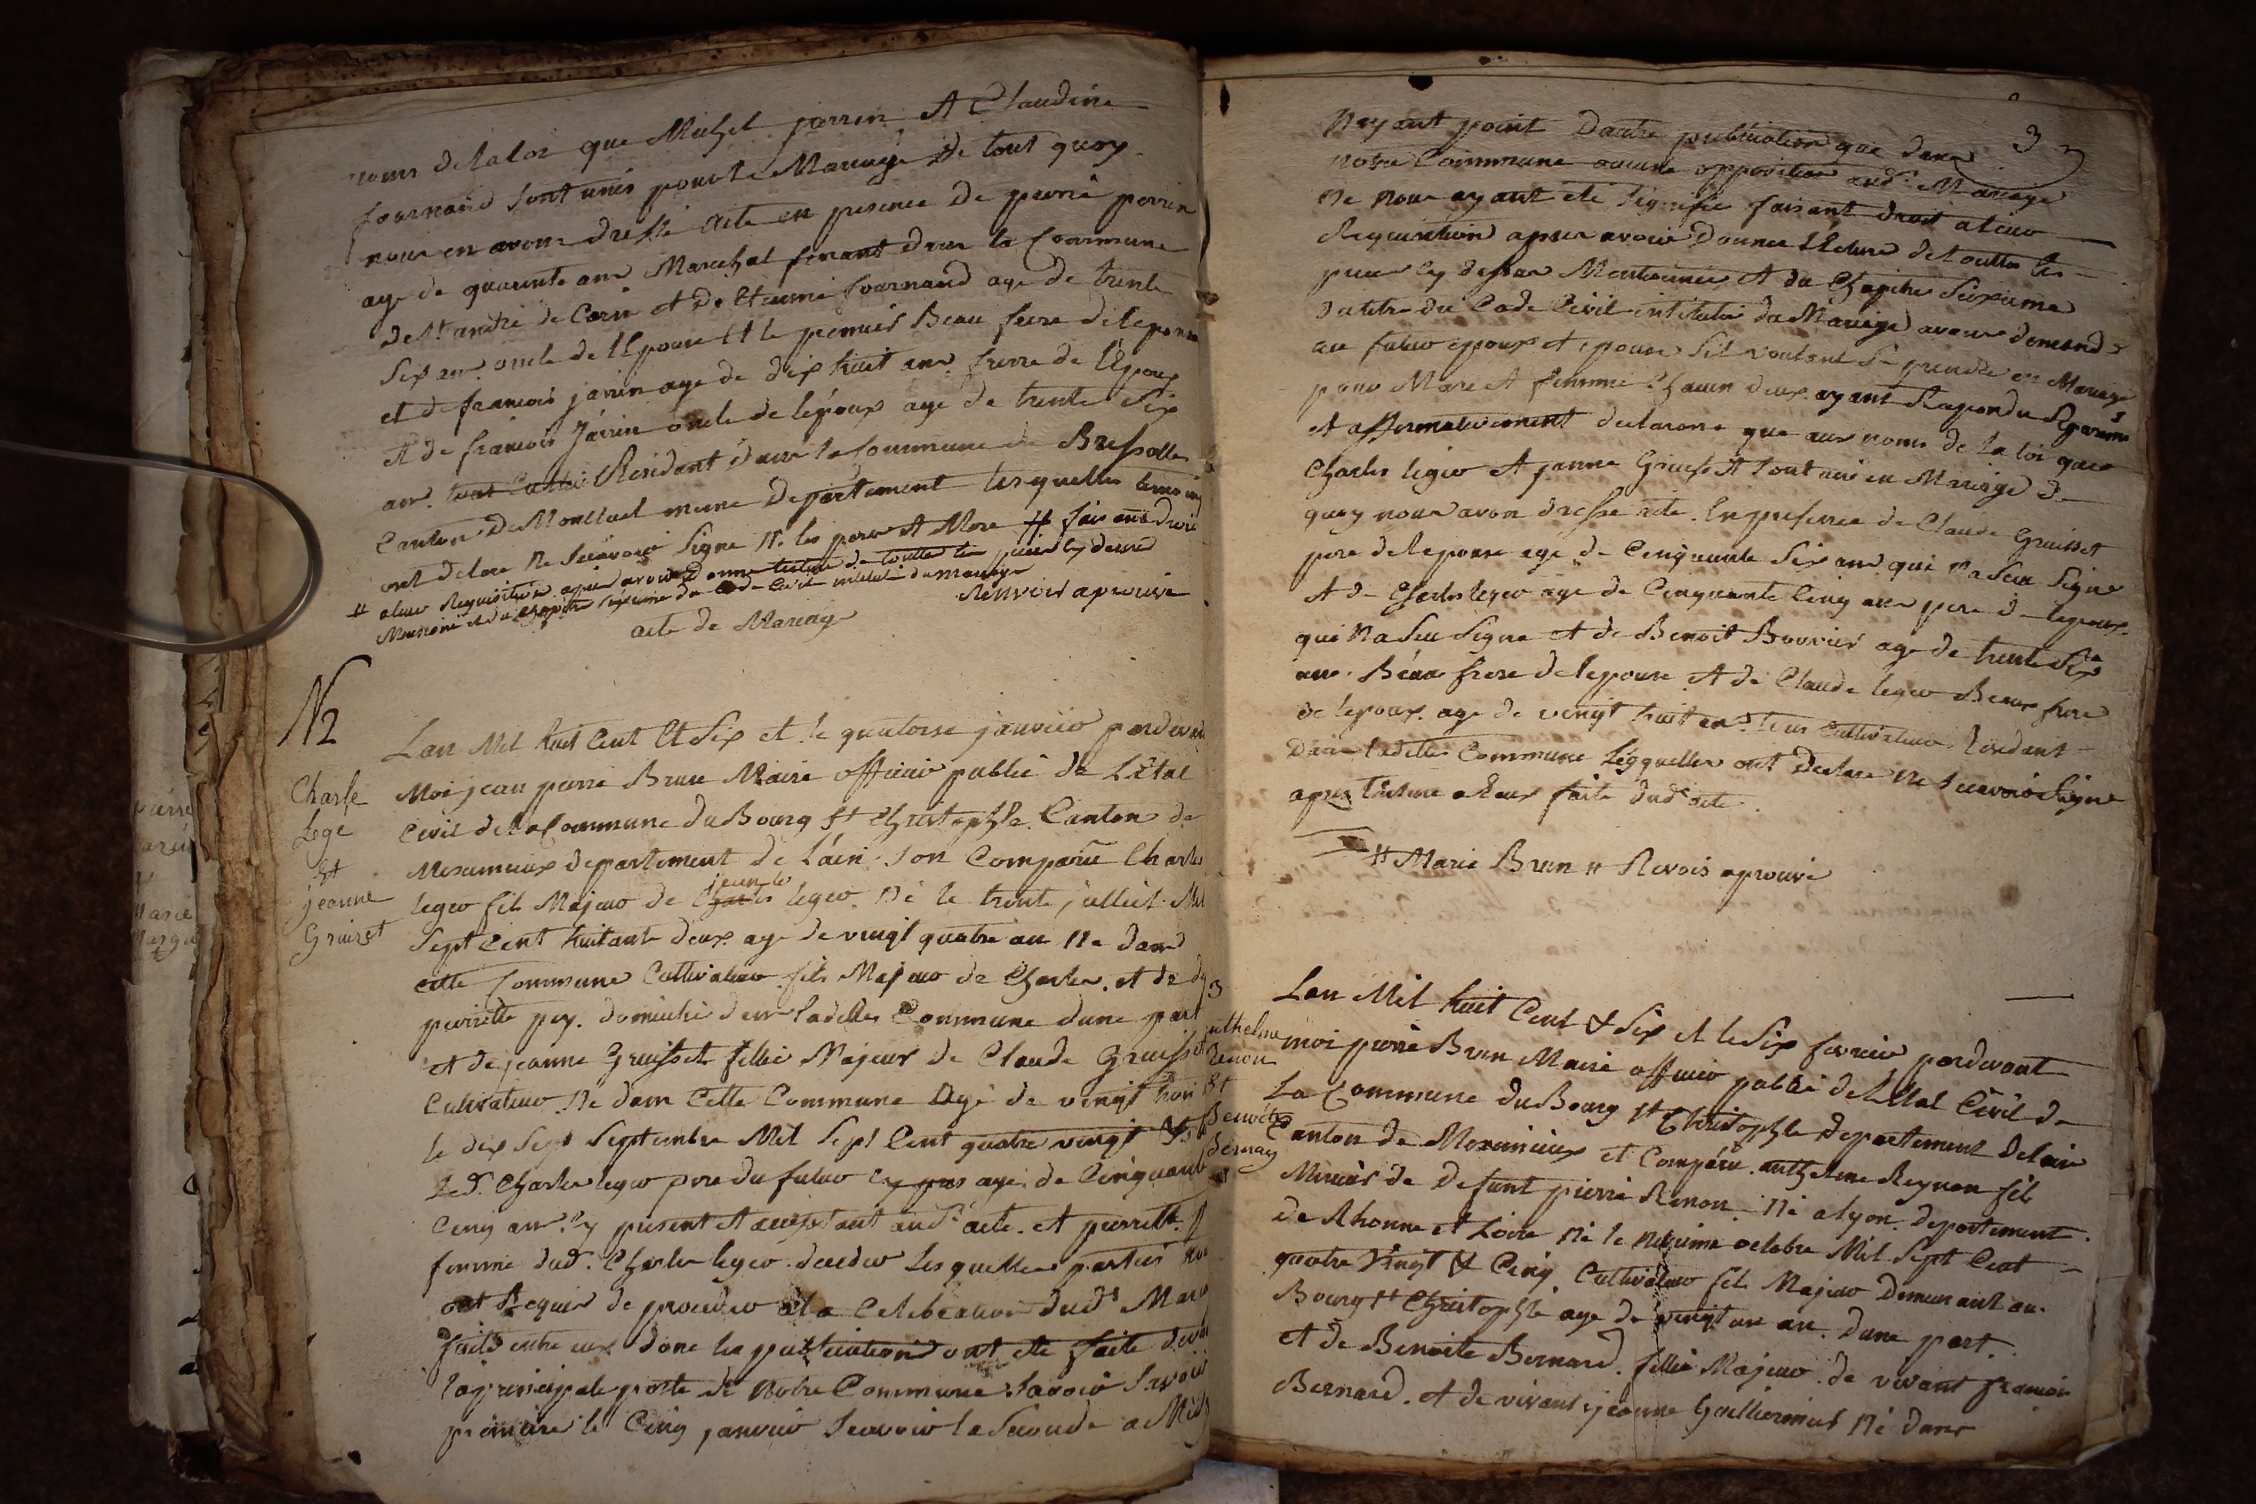 noms de la loi que Michel parrin et Claudine
fournand sont unis pour le Mariage de tout quoy
nous en avons dressé acte en presence de pierre perrin
age de quarente ans Marechal ferant dans la Commune
de St andré de Corci et de Etienne fournand age de trente
six ans oncle de lEpouse et le premier Beau frere de lepouse
et de francois janin age de dix huit ans frere de lEpoux
et de francois Janin oncle de lépoux age de trente six
ans Residant dans la Commune de Bressolles
Canton de Montluel meme Departement lesquelles temoins
ont declare ne scavoir signe # fais ans droit
# aleur Requisition apres avoir donne lecture de toutes les pieces cy dessus
Mensionné et du chapitre sixieme du Code Civil intitulé du mariage
Renvois aprouvé
acte de Mariage
N2
Charle
Lege
et
jeanne
Gruiset
Lan Mil huit Cent et Six et le quatorse janvier pardevant
Moi jean pierre Brun Maire officier public de LEtat
Civil de la Commune du Bourg St Christophle Canton de
Meximieux departement de Lain son Comparu Charles
leger fils Majeur de Charles leger Né le trente juilliet Mil
Sept Cent huitante deux age de vingt quatre an Ne dans
cette Commune Cultivateur fils Majeur de Charles et de
pierrette pey domicilie dans ladittes Commune dune part
et de jeanne Gruisset fillie Majeur de Claude Gruisset
Cultivateur Ne dans Cette Commune Agé de vingt trois
le dix Sept Septembre Mil Sept Cent quatre vingt
Led. Charles leger pere du futur age de Cinquante
Cinq ans y present et acceptant aud. acte et pierrette
femme dud. Charles leger Lesquelles parties
ont Requis de proceder a la Celebration dud. Mariage
faite entre eux donc les publications ont ete faite devant
la principale porte de Notre Commune Savoir
premiere le Cinq janvier Scavoir la Seconde a Midy
3
Nayant point Dautre publication que dans
notre Commune aucune opposition aud. Mariage
Ne nous ayant ete signifie faisant droit aleur
Requisition apres avoir donnee Lecture de toutes les
piece cy dessus Mentionnée et du Chapitre Sixieme
du titre du Code Civil intitulé du Mariage avons demandé
au futur époux et epouse sil voulent se prendre en Mariage
pour Mare et femme Chacun deux ayant Repondu Separement
et affirmativement declarons que aux noms de la loi que
Charles leger et janne Gruisset sont uni en Mariage de
quoy nous avon dressé acte. En presence de Claude Gruisset
pere de lepouse age de Cinquante Six ans qui na Seu Signe
et de Charles leger age de Cinquante Cinq ans pere de lepoux
qui Na Seu Signe et de Benoit Bouvier age de trente Six
ans Beau frere de lepouse et de Claude leger Beau frere
de lepoux age de vingt huit ans tous Cultivateur Residant
Dans laditte Commune Lesquelles ont Declare Ne Scavoir Signe
apres Lecture a Eux faite dud. acte
# Marie Brun # Revois aprouvé
3
Anthelme
Renon
Et
Benoite
Bernay
Lan Mil huit Cent & Six et le Six fevrier pardevant
moi pierre Brun Maire officier public de LEtat Civil de
La Commune du Bourg St Christophle departement delain
Canton de Meximieux et Comparu anthelme Reynon fils
Mineur de Defunt pierre Renon Né a lyon departement
de Rhonne et Loire né le neuvième octobre Mil Sept Cent
quatre Vingt & Cinq Cultivateur fils Majeur Demeurant au
Bourg St Christophle age de vingt un an Dune part
et de Benoite Bernard fillie Majeur de vivant francois
Bernard et de vivant jeanne Guilliermet Né dans